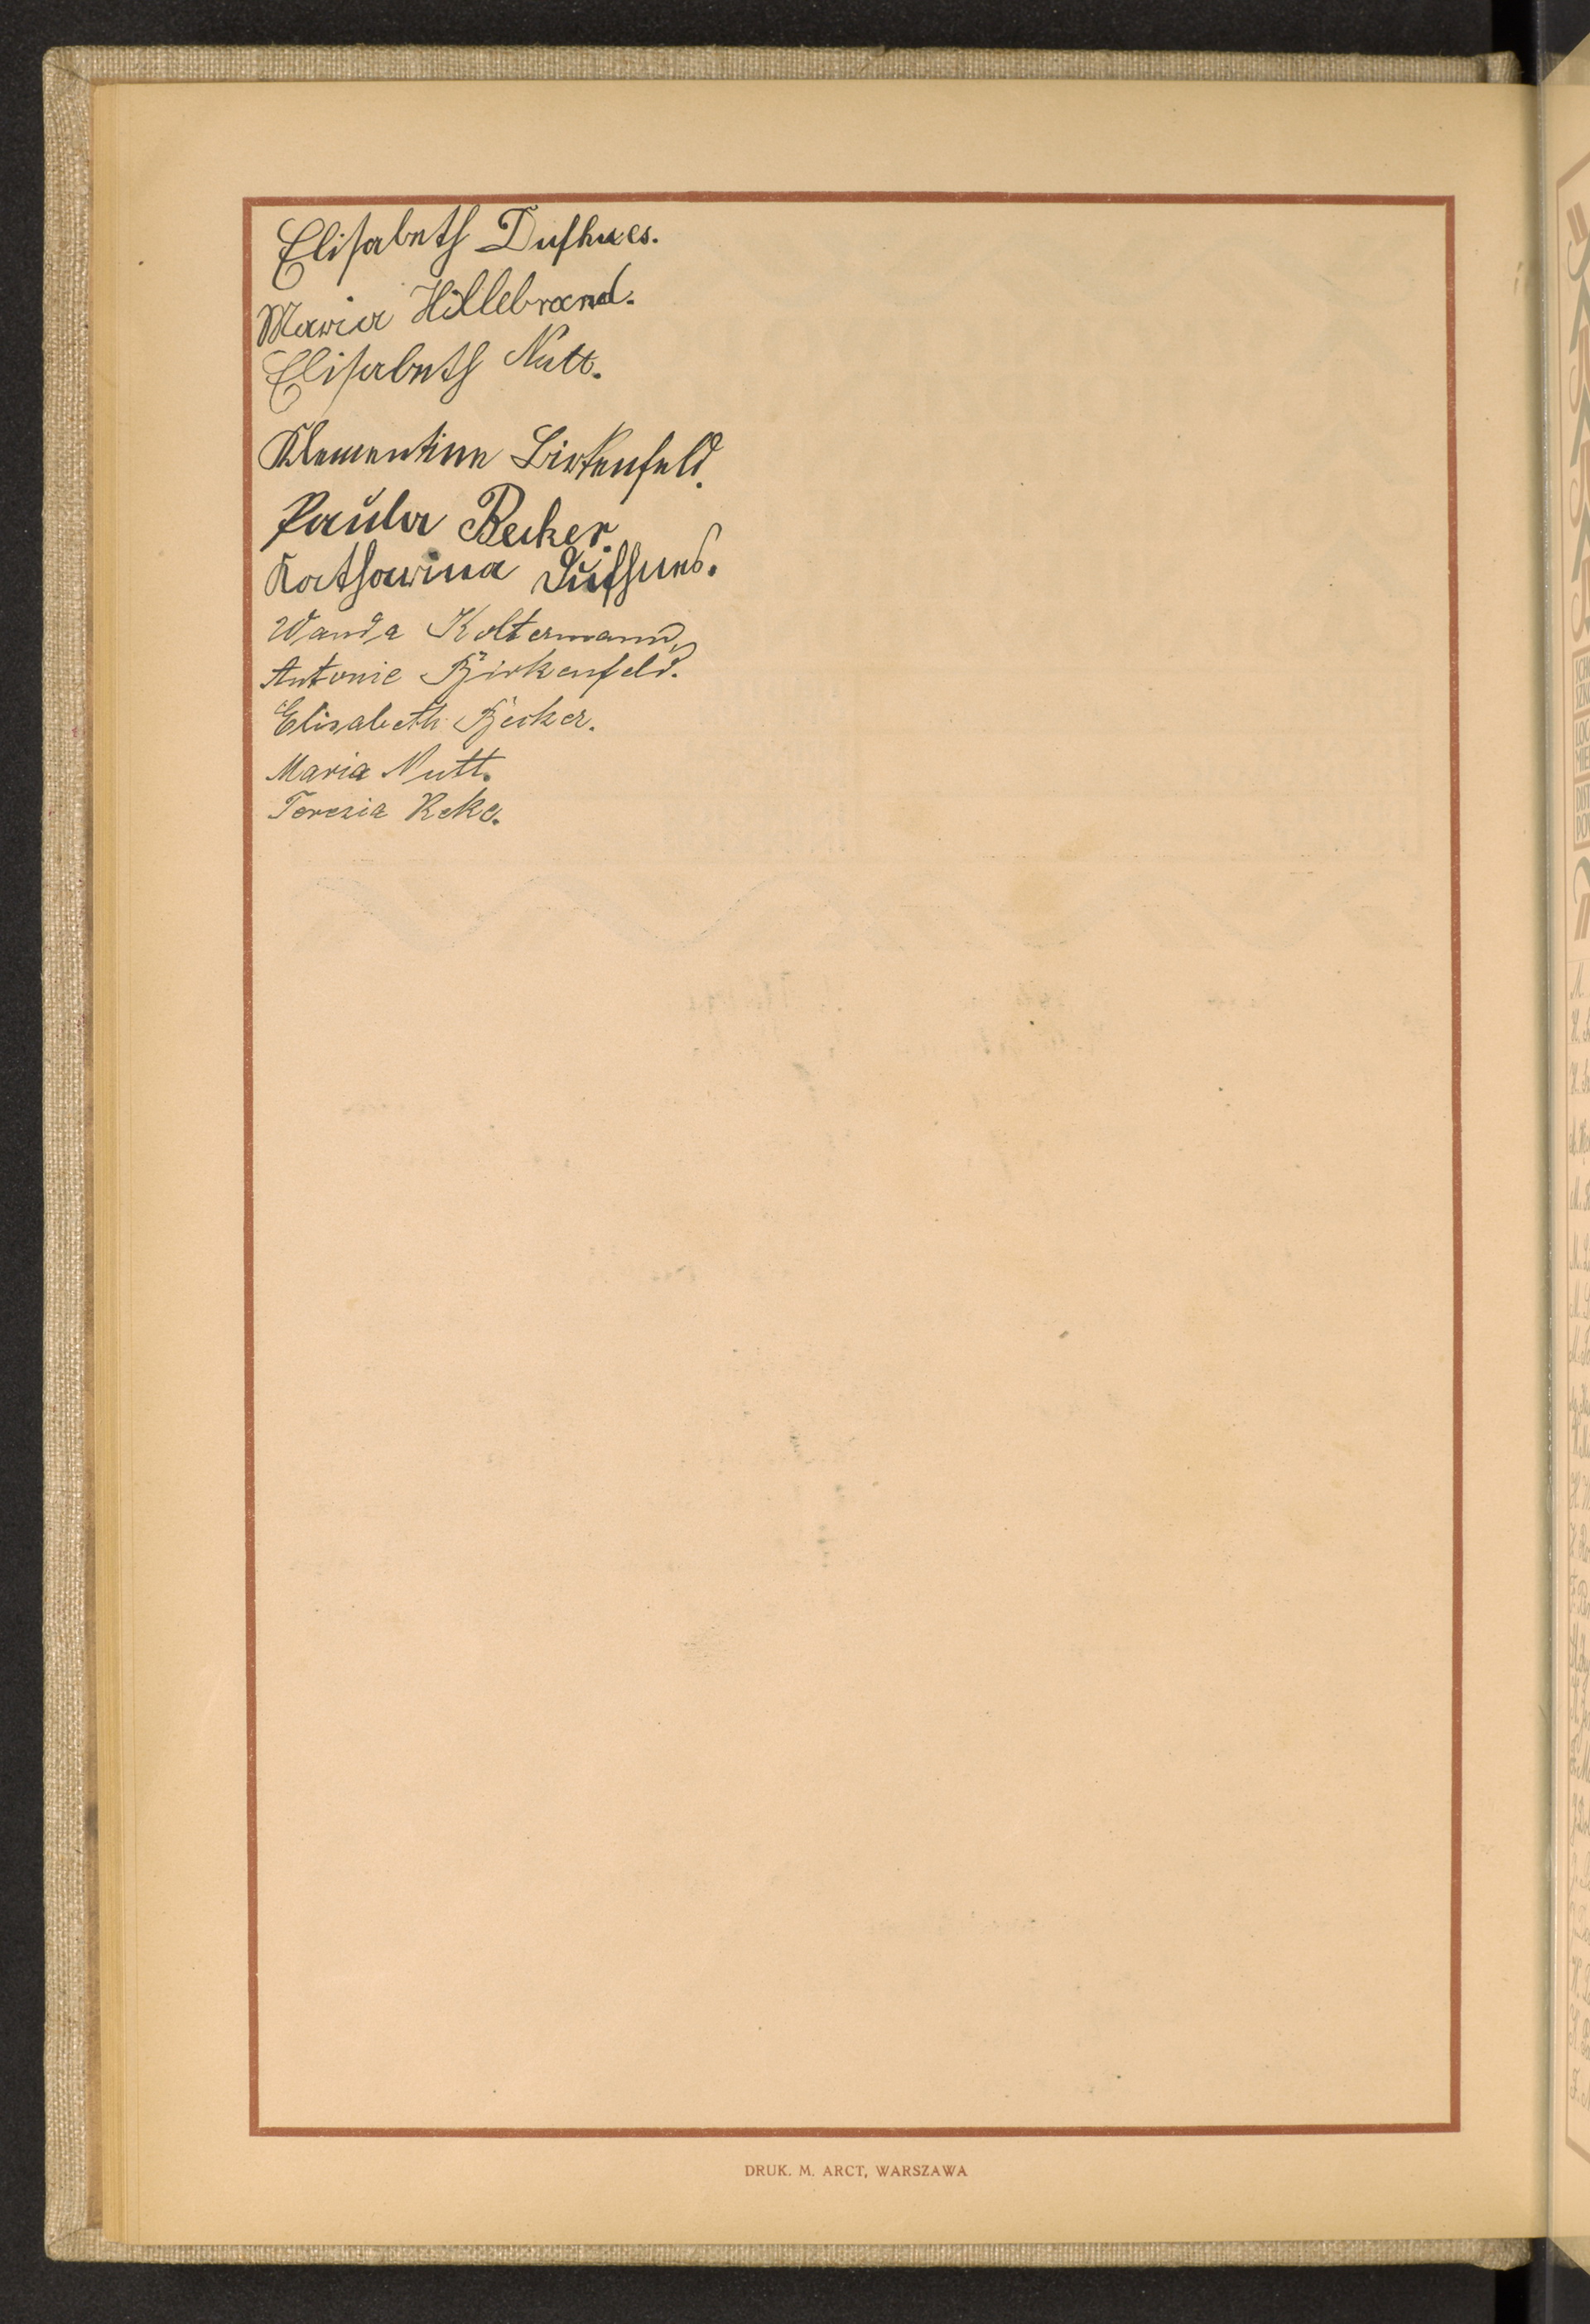 Elisabeth Dufhues.
Maria Hillebrand.
Elisabeth Nutt.
Klementine Birkenfeld.
Paula Becker.
Katharina Dufhues.
Wanda Koltermann,
Antonie Birkenfeld.
Elisabeth Becker.
Maria Nutt.
Teresia Reke.
DRUK. M. ARCT, WARSZAWA